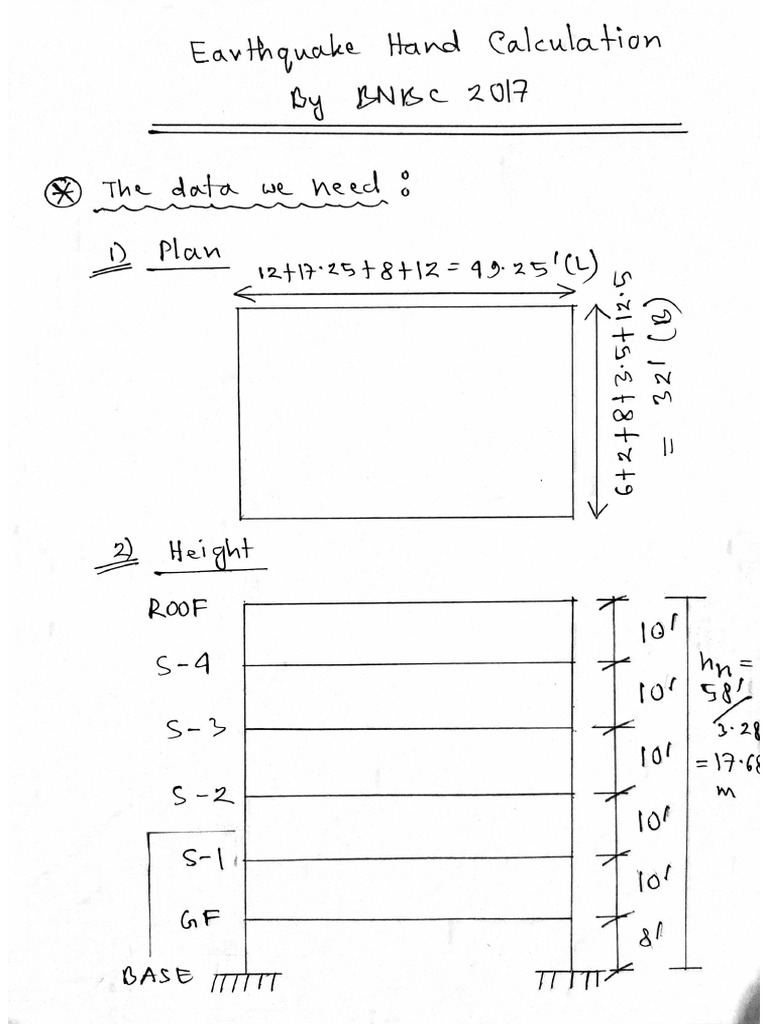 Earthquake Hand Calculation
By BNBC 2017
The data we need :
1) Plan
12+17.25+8+12 = 49.25' (L)
6+2+8+3.5+12.5
= 32' (B)
2) Height
ROOF
10'
S-4
hn =
58'
10'
3.28
S-3
= 17.68
10'
m
S-2
10'
S-1
10'
GF
8'
BASE